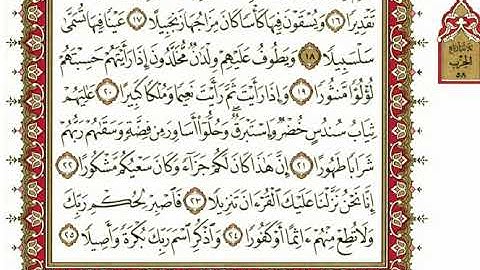 تَقْدِيرًا ١٦ وَيُسْقَوْنَ فِيهَا كَأْسًا كَانَ مِزَاجُهَا زَنجَبِيلًا ١٧ عَيْنًا فِيهَا تُسَمَّىٰ
سَلْسَبِيلًا ١٨ وَيَطُوفُ عَلَيْهِمْ وِلْدَٰنٌ مُّخَلَّدُونَ إِذَا رَأَيْتَهُمْ حَسِبْتَهُمْ
لُؤْلُؤًا مَّنثُورًا ١٩ وَإِذَا رَأَيْتَ ثَمَّ رَأَيْتَ نَعِيمًا وَمُلْكًا كَبِيرًا ٢٠ عَٰلِيَهُمْ
ثِيَابُ سُندُسٍ خُضْرٌ وَإِسْتَبْرَقٌ وَحُلُّوٓا۟ أَسَاوِرَ مِن فِضَّةٍ وَسَقَىٰهُمْ رَبُّهُمْ
شَرَابًا طَهُورًا ٢١ إِنَّ هَٰذَا كَانَ لَكُمْ جَزَآءً وَكَانَ سَعْيُكُم مَّشْكُورًا ٢٢
إِنَّا نَحْنُ نَزَّلْنَا عَلَيْكَ ٱلْقُرْءَانَ تَنزِيلًا ٢٣ فَٱصْبِرْ لِحُكْمِ رَبِّكَ
وَلَا تُطِعْ مِنْهُمْ ءَاثِمًا أَوْ كَفُورًا ٢٤ وَٱذْكُرِ ٱسْمَ رَبِّكَ بُكْرَةً وَأَصِيلًا ٢٥
الحزب
٥٨